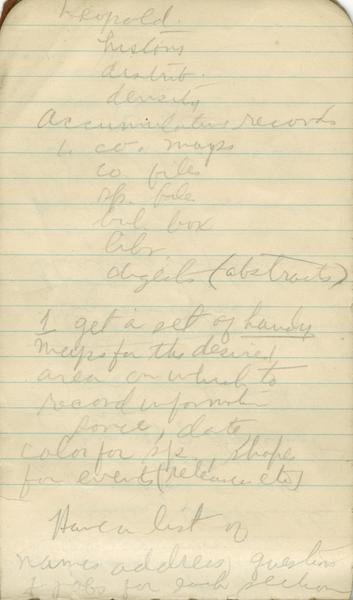 Leopold.
history
distrib.
density
Accumulative records
1. co. maps
co files
sp. file
bib. box
libr
digests (abstracts)
1 get a set of handy
maps for the desired
area on which to
record information
source, date
color for sp., shape
for events (releases etc)
Have a list of
names address, questions
& jobs for each section